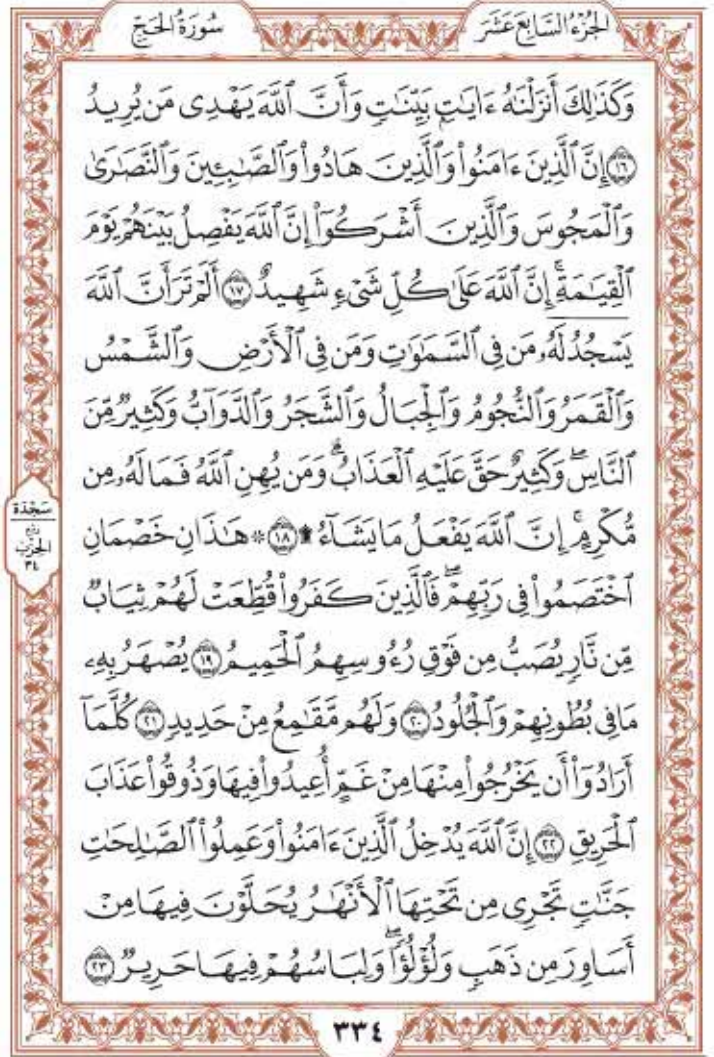 الجُزْءُ السَّابِعَ عَشَرَ
سُورَةُ الحَجِّ
وَكَذَٰلِكَ أَنزَلْنَٰهُ ءَايَٰتٍۭ بَيِّنَٰتٍ وَأَنَّ ٱللَّهَ يَهْدِى مَن يُرِيدُ
﴿١٦﴾ إِنَّ ٱلَّذِينَ ءَامَنُوا۟ وَٱلَّذِينَ هَادُوا۟ وَٱلصَّٰبِـِٔينَ وَٱلنَّصَٰرَىٰ
وَٱلْمَجُوسَ وَٱلَّذِينَ أَشْرَكُوٓا۟ إِنَّ ٱللَّهَ يَفْصِلُ بَيْنَهُمْ يَوْمَ
ٱلْقِيَٰمَةِۚ إِنَّ ٱللَّهَ عَلَىٰ كُلِّ شَىْءٍ شَهِيدٌ ﴿١٧﴾ أَلَمْ تَرَ أَنَّ ٱللَّهَ
يَسْجُدُ لَهُۥ مَن فِى ٱلسَّمَٰوَٰتِ وَمَن فِى ٱلْأَرْضِ وَٱلشَّمْسُ
وَٱلْقَمَرُ وَٱلنُّجُومُ وَٱلْجِبَالُ وَٱلشَّجَرُ وَٱلدَّوَآبُّ وَكَثِيرٌ مِّنَ
ٱلنَّاسِۖ وَكَثِيرٌ حَقَّ عَلَيْهِ ٱلْعَذَابُۗ وَمَن يُهِنِ ٱللَّهُ فَمَا لَهُۥ مِن
مُّكْرِمٍۚ إِنَّ ٱللَّهَ يَفْعَلُ مَا يَشَآءُ ۩ ﴿١٨﴾ ۞ هَٰذَانِ خَصْمَانِ
ٱخْتَصَمُوا۟ فِى رَبِّهِمْۖ فَٱلَّذِينَ كَفَرُوا۟ قُطِّعَتْ لَهُمْ ثِيَابٌ
مِّن نَّارٍ يُصَبُّ مِن فَوْقِ رُءُوسِهِمُ ٱلْحَمِيمُ ﴿١٩﴾ يُصْهَرُ بِهِۦ
مَا فِى بُطُونِهِمْ وَٱلْجُلُودُ ﴿٢٠﴾ وَلَهُم مَّقَٰمِعُ مِنْ حَدِيدٍ ﴿٢١﴾ كُلَّمَآ
أَرَادُوٓا۟ أَن يَخْرُجُوا۟ مِنْهَا مِنْ غَمٍّ أُعِيدُوا۟ فِيهَا وَذُوقُوا۟ عَذَابَ
ٱلْحَرِيقِ ﴿٢٢﴾ إِنَّ ٱللَّهَ يُدْخِلُ ٱلَّذِينَ ءَامَنُوا۟ وَعَمِلُوا۟ ٱلصَّٰلِحَٰتِ
جَنَّٰتٍ تَجْرِى مِن تَحْتِهَا ٱلْأَنْهَٰرُ يُحَلَّوْنَ فِيهَا مِنْ
أَسَاوِرَ مِن ذَهَبٍ وَلُؤْلُؤًاۖ وَلِبَاسُهُمْ فِيهَا حَرِيرٌ ﴿٢٣﴾
سَجْدَة
ربع
الحزب
٣٤
٣٣٤